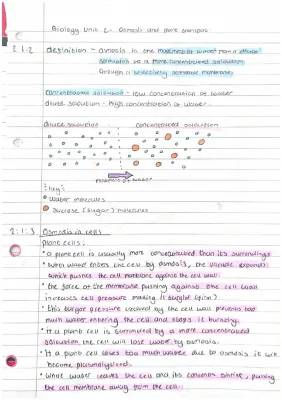 Biology Unit 2 - Osmosis and plant transport
2.1.2 definition - osmosis is the movement of water from a dilute
solution to a more concentrated solution
through a selectively permeable membrane.
concentrated solution - low concentration of water
dilute solution - high concentration of water
dilute solution concentrated solution
movement of water
key:
water molecules
sucrose (sugar) molecules
2.1.3 Osmosis in cells
plant cells:
• a plant cell is usually more concentrated than its surroundings
• when water enters the cell by osmosis, the vacuole expands
which pushes the cell membrane against the cell wall.
• the force of the membrane pushing against the cell wall
increases cell pressure making it turgid
• this turgor pressure created by the cell wall prevents too
much water entering the cell and stops it bursting.
• If a plant cell is surrounded by a more concentrated
solution the cell will lose water by osmosis.
• If a plant cell loses too much water due to osmosis it will
become plasmolysed.
• When water leaves the cell and its contents shrink, pulling
the cell membrane away from the cell